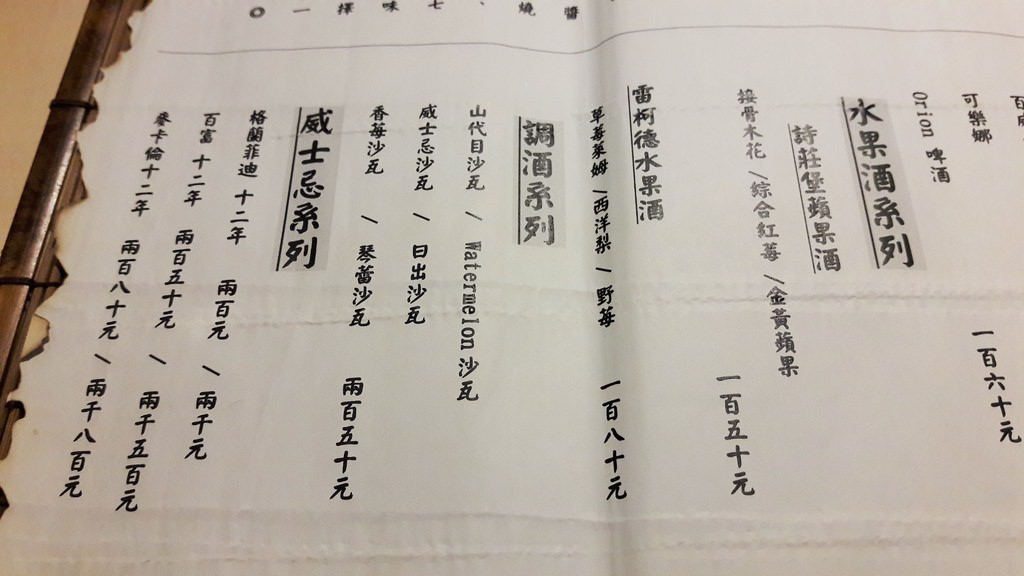 可樂娜
Orion 啤酒
一百六十元
水果酒系列
詩莊堡蘋果酒
接骨木花／綜合紅莓／金黃蘋果
一百五十元
雷柯德水果酒
草莓萊姆／西洋梨／野莓
一百八十元
調酒系列
山代目沙瓦 ／ Watermelon 沙瓦
威士忌沙瓦 ／ 日出沙瓦
香莓沙瓦 ／ 琴蕾沙瓦
兩百五十元
威士忌系列
格蘭菲迪 十二年 兩百元 ／ 兩千元
百富 十二年 兩百五十元 ／ 兩千五百元
麥卡倫十二年 兩百八十元 ／ 兩千八百元
醬燒、七味擇一◎